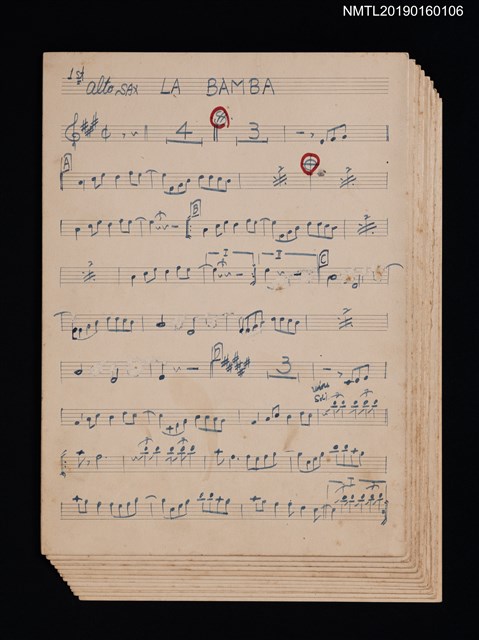 NMTL20190160106
1st alto SAX LA BAMBA
4 3
A
B
I I C
D 3
I